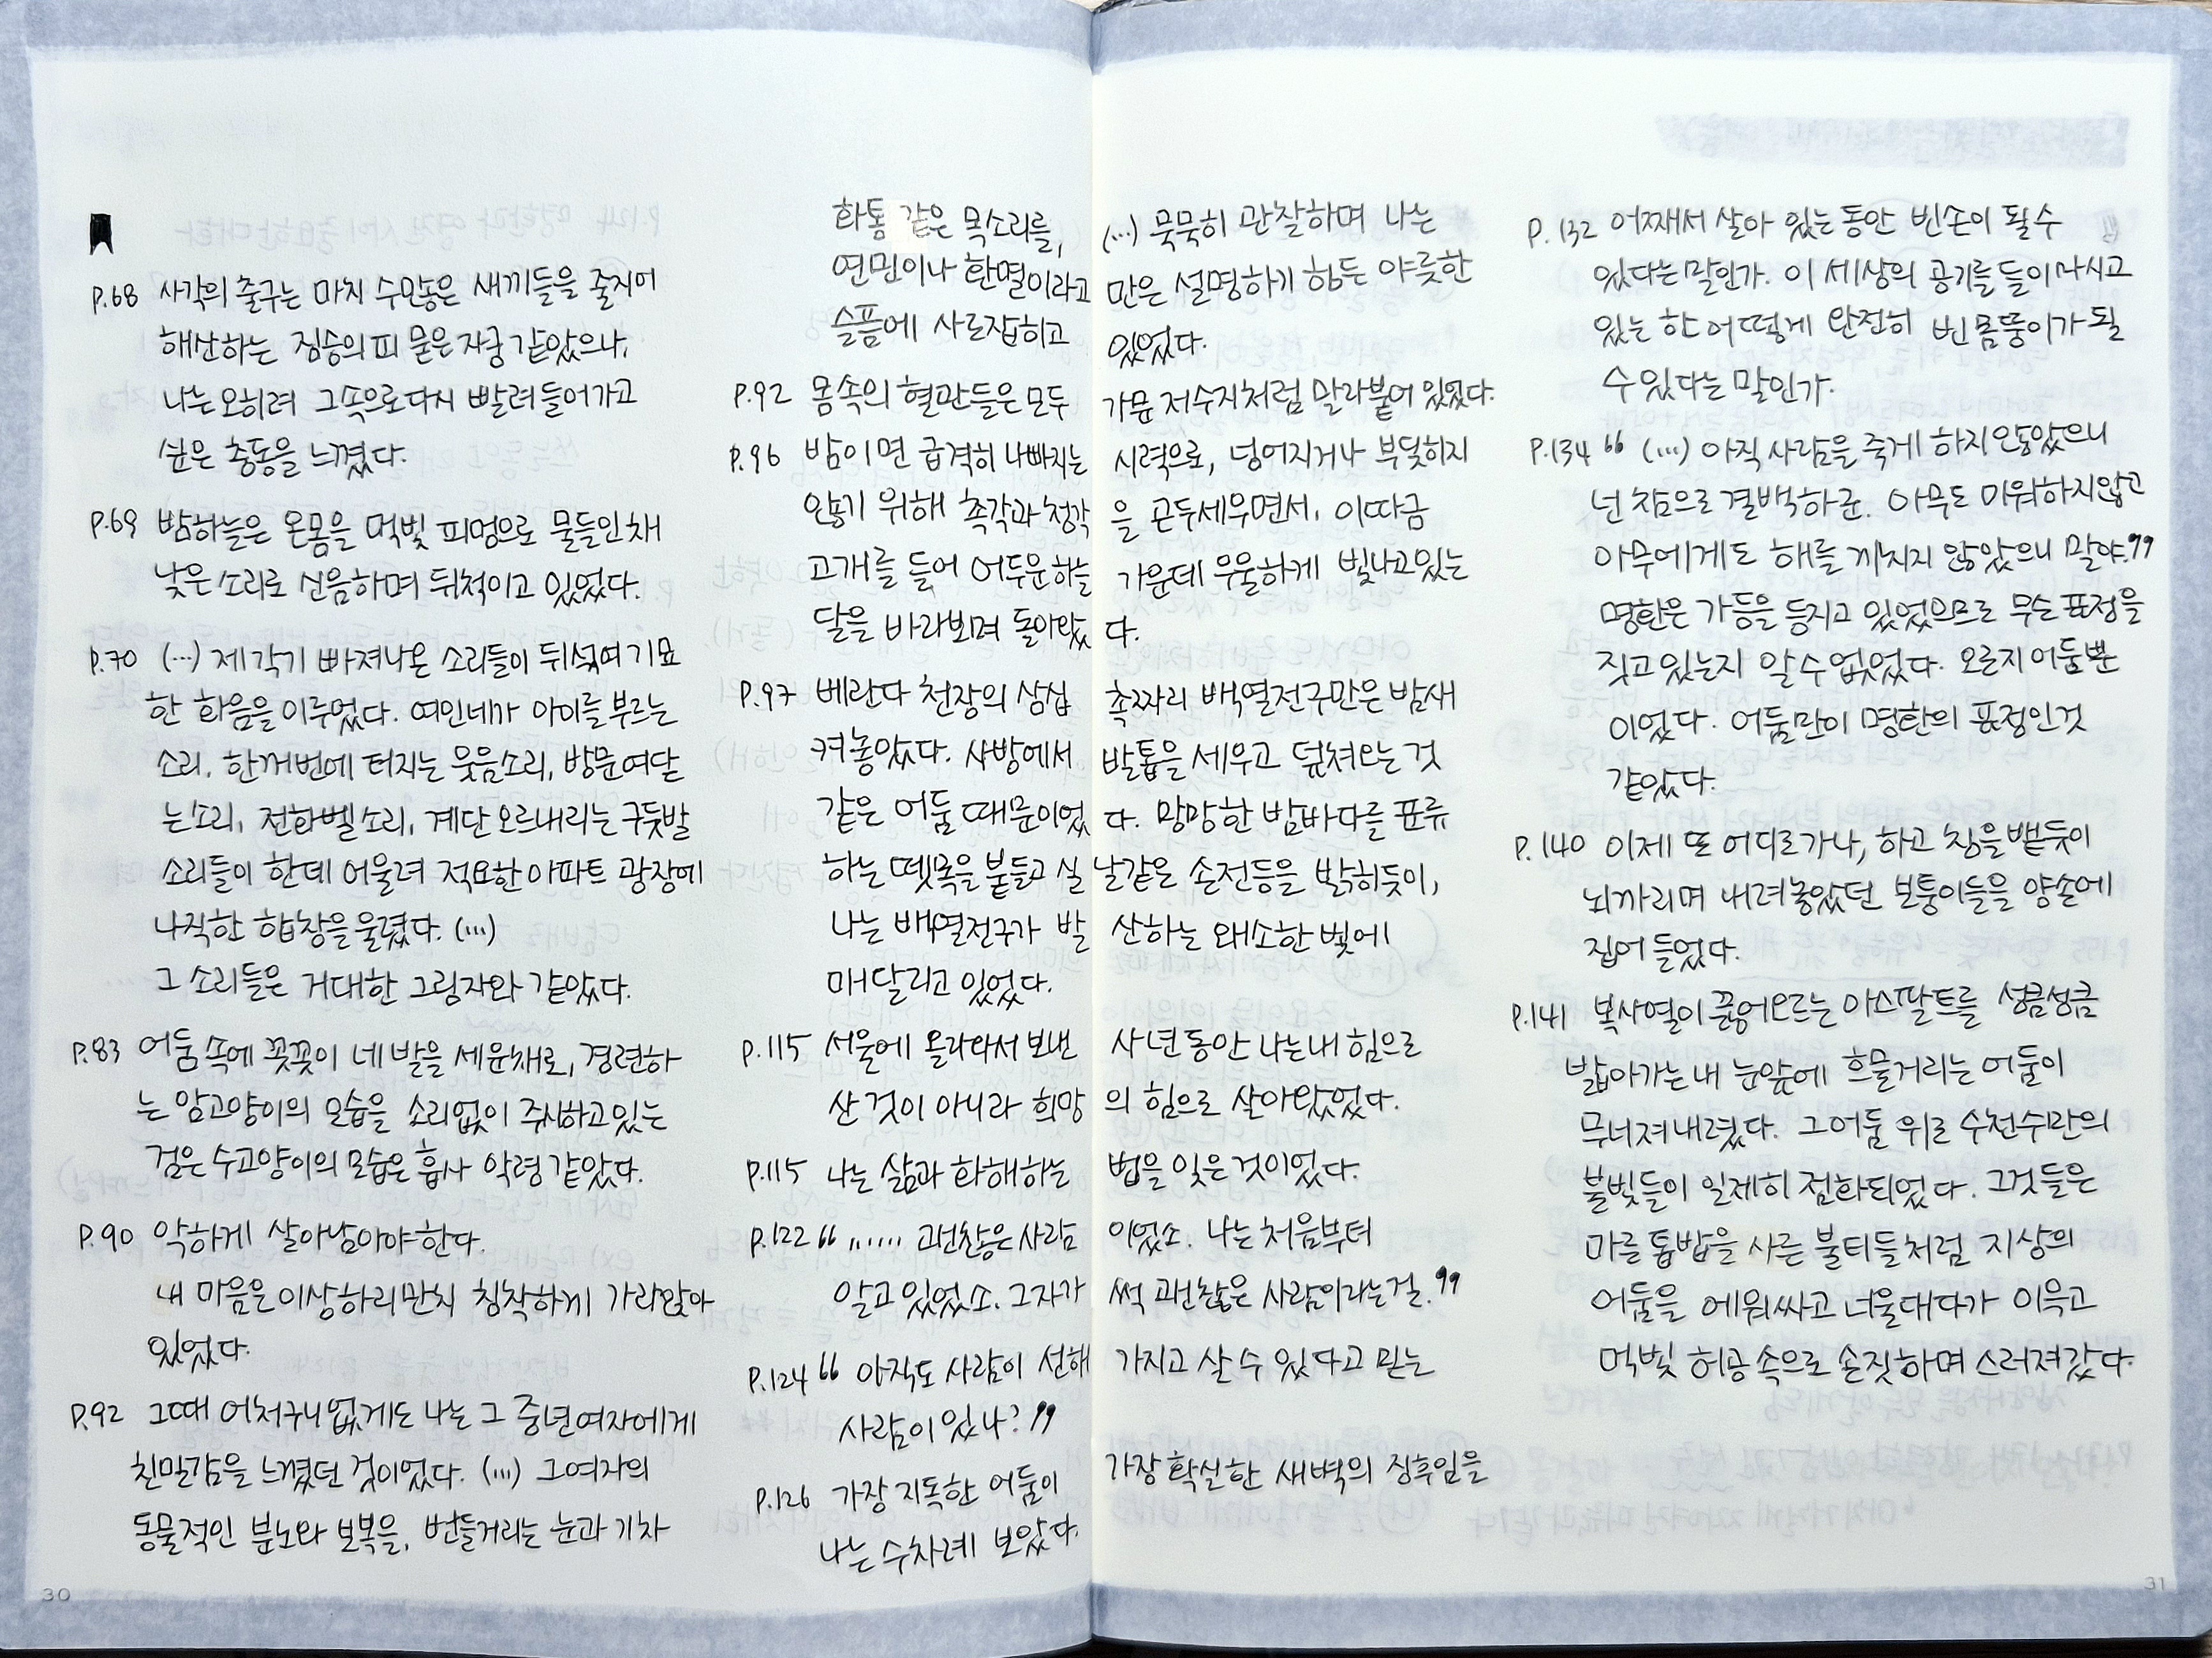 P.68 사각의 출구는 마치 수많은 새끼들을 줄지어
해산하는 짐승의 피 묻은 자궁 같았으나,
나는 오히려 그 속으로 다시 빨려 들어가고
싶은 충동을 느꼈다.
P.69 밤하늘은 온몸을 먹빛 피멍으로 물들인 채
낮은 소리로 신음하며 뒤척이고 있었다.
P.70 (…) 제각기 빠져나온 소리들이 뒤섞여 기묘
한 화음을 이루었다. 여인네가 아이를 부르는
소리, 한꺼번에 터지는 웃음소리, 방문 여닫
는 소리, 전화벨 소리, 계단 오르내리는 구둣발
소리들이 한데 어울려 적요한 아파트 광장에
나직한 합창을 울렸다. (…)
그 소리들은 거대한 그림자와 같았다.
P.83 어둠 속에 꼿꼿이 네 발을 세운 채로, 경련하
는 암고양이의 모습을 소리없이 주시하고 있는
검은 수고양이의 모습은 흡사 악령 같았다.
P.90 악하게 살아남아야 한다.
내 마음은 이상하리만치 침착하게 가라앉아
있었다.
P.92 그때 어처구니 없게도 나는 그 중년 여자에게
친밀감을 느꼈던 것이었다. (…) 그 여자의
동물적인 분노와 보복을, 번들거리는 눈과 기차
화통 같은 목소리를, (…) 묵묵히 관찰하며 나는
연민이나 환멸이라고만은 설명하기 힘든 야릇한
슬픔에 사로잡히고 있었다.
P.92 몸 속의 혈관들은 모두 가문 저수지처럼 말라붙어 있었다.
P.96 밤이면 급격히 나빠지는 시력으로, 넘어지거나 부딪히지
않기 위해 촉각과 청각을 곤두세우면서, 이따금
고개를 들어 어두운 하늘 가운데 우울하게 빛나고 있는
달을 바라보며 돌아왔다.
P.97 베란다 천장의 삼십 촉짜리 백열전구만은 밤새
켜 놓았다. 사방에서 발톱을 세우고 덮쳐오는 것
같은 어둠 때문이었다. 망망한 밤바다를 표류
하는 뗏목을 붙들고 실날같은 손전등을 밝히듯이,
나는 백열전구가 발산하는 왜소한 빛에
매달리고 있었다.
P.115 서울에 올라와서 보낸 사년 동안 나는 내 힘으로
산 것이 아니라 희망의 힘으로 살아왔었다.
P.115 나는 삶과 화해하는 법을 잊은 것이었다.
P.122 “ …… 괜찮은 사람이었소. 나는 처음부터
알고 있었소. 그자가 썩 괜찮은 사람이라는 걸.”
P.124 “ 아직도 사람이 선해가지고 살 수 있다고 믿는
사람이 있나?”
P.126 가장 지독한 어둠이 가장 확실한 새벽의 징후임을
나는 수차례 보았다.
P.132 어째서 살아 있는 동안 빈손이 될 수
있다는 말인가. 이 세상의 공기를 들이마시고
있는 한 어떻게 완전히 빈 몸뚱이가 될
수 있다는 말인가.
P.134 “ (…) 아직 사람을 죽게 하지 않았으니
넌 참으로 결백하군. 아무도 미워하지 않고
아무에게도 해를 끼치지 않았으니 말야.”
명환은 가등을 등지고 있었으므로 무슨 표정을
짓고 있는지 알 수 없었다. 오로지 어둠뿐
이었다. 어둠만이 명환의 표정인 것
같았다.
P.140 이제 또 어디로 가나, 하고 침을 뱉듯이
뇌까리며 내려놓았던 보퉁이들을 양손에
집어 들었다.
P.141 복사열이 끓어오르는 아스팔트를 성큼성큼
밟아가는 내 눈앞에 흐물거리는 어둠이
무너져 내렸다. 그 어둠 위로 수천수만의
불빛들이 일제히 점화되었다. 그것들은
마른 톱밥을 사른 불티들처럼 지상의
어둠을 에워싸고 너울대다가 이윽고
먹빛 허공 속으로 손짓하며 스러져갔다.
30
31